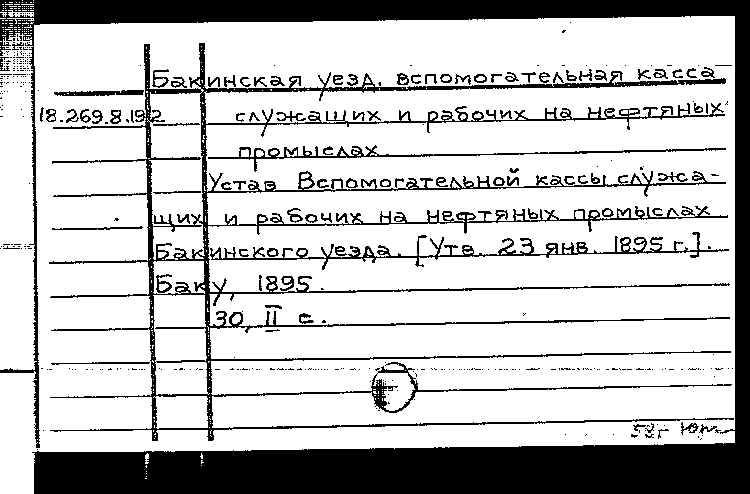 Бакинская уезд. вспомогательная касса
18.269.8.192 служащих и рабочих на нефтяных
промыслах.
Устав Вспомогательной кассы служа-
щих и рабочих на нефтяных промыслах
Бакинского уезда. [Утв. 23 янв. 1895 г.].
Баку, 1895.
30, II с.